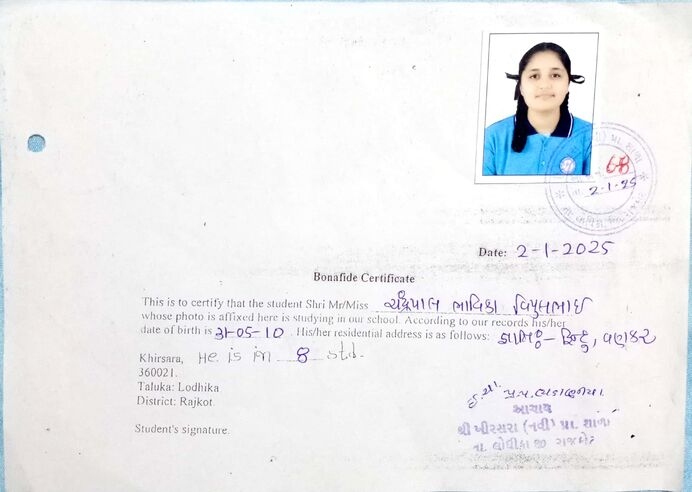 68
2-1-25
Date: 2-1-2025
Bonafide Certificate
This is to certify that the student Shri Mr/Miss ભાવિકા વિપુલભાઇ
whose photo is affixed here is studying in our school. According to our records his/her
date of birth is 31-05-10. His/her residential address is as follows: હિન્દુ, વણકર
Khirsara, He is in 8 std.
360021.
Taluka: Lodhika
District: Rajkot.
આચાર્ય
શ્રી ખીરસરા (નવી) પ્રા. શાળા
તા. લોધીકા જી. રાજકોટ
Student's signature.